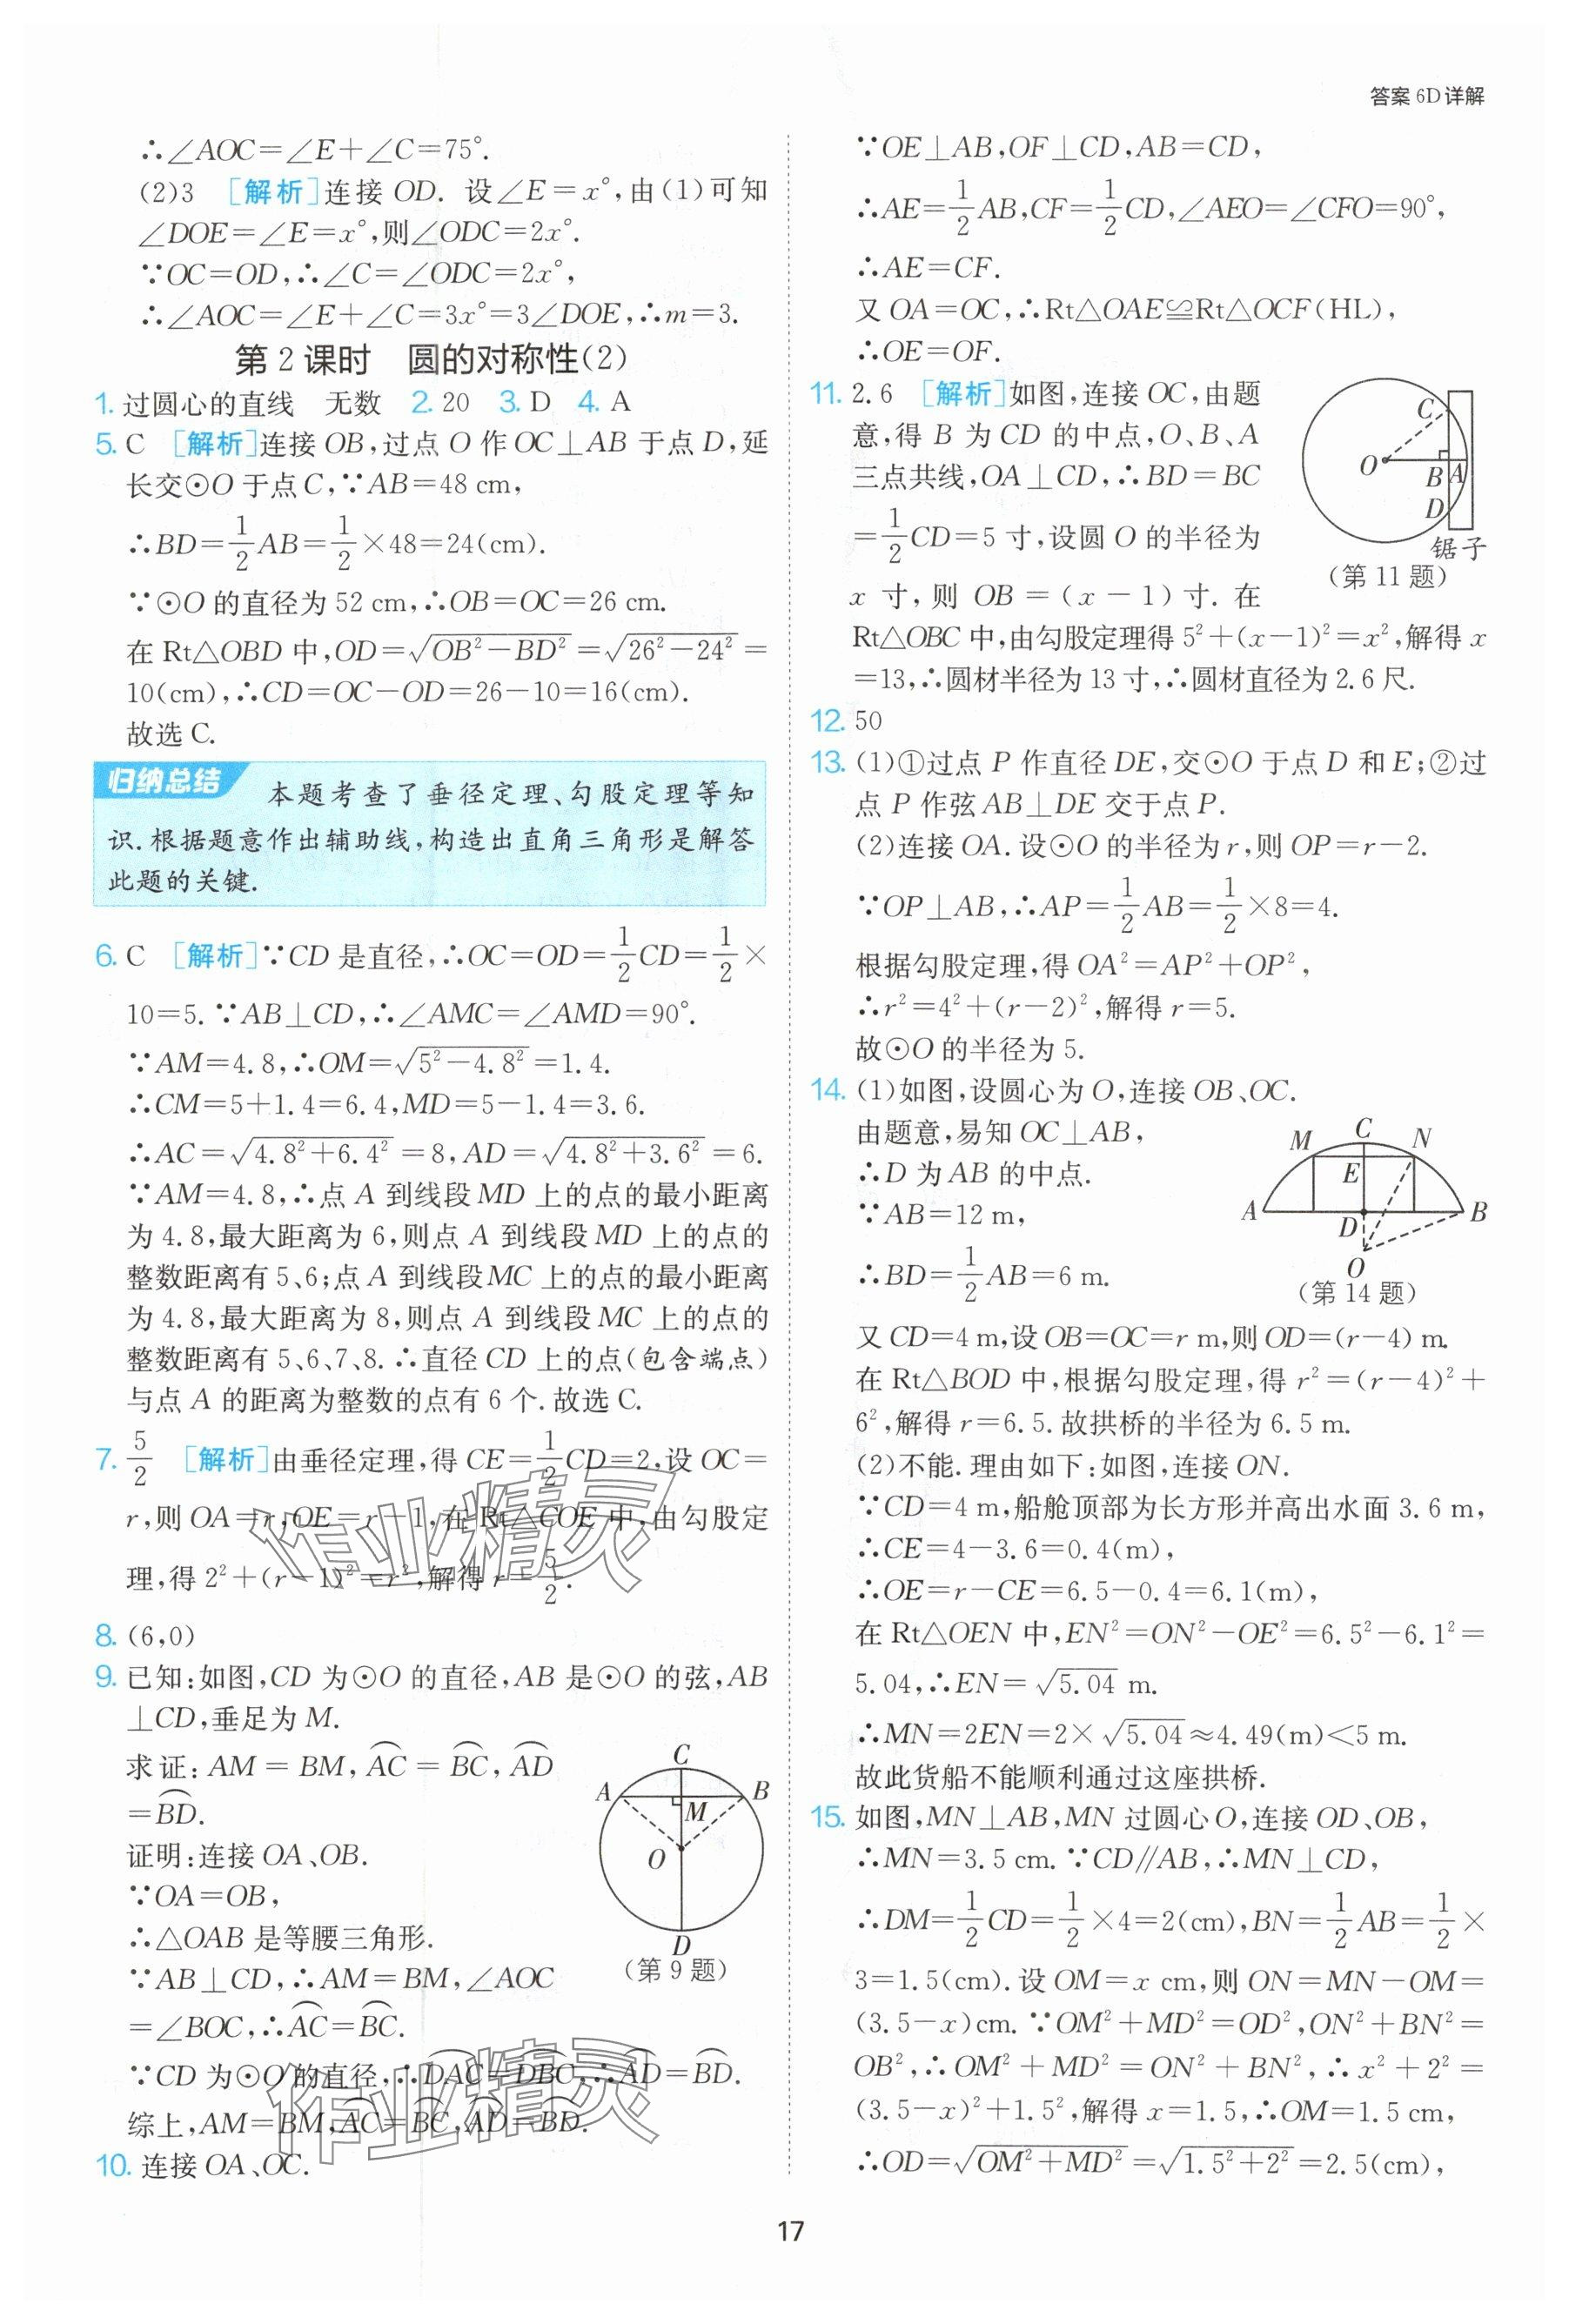 答案 6D详解
∴∠AOC=∠E+∠C=75°.
(2)3 [解析]连接 OD. 设∠E=x°,由(1)可知
∠DOE=∠E=x°,则∠ODC=2x°.
∵OC=OD,∴∠C=∠ODC=2x°,
∴∠AOC=∠E+∠C=3x°=3∠DOE,∴m=3.
第 2 课时 圆的对称性(2)
1. 过圆心的直线 无数 2. 20 3. D 4. A
5. C [解析]连接 OB,过点 O 作 OC⊥AB 于点 D,延
长交⊙O 于点 C,∵AB=48 cm,
∴BD=1/2AB=1/2×48=24(cm).
∵⊙O 的直径为 52 cm,∴OB=OC=26 cm.
在 Rt△OBD 中,OD=√(OB²-BD²)=√(26²-24²)=
10(cm),∴CD=OC-OD=26-10=16(cm).
故选 C.
归纳总结 本题考查了垂径定理、勾股定理等知
识.根据题意作出辅助线,构造出直角三角形是解答
此题的关键.
6. C [解析]∵CD 是直径,∴OC=OD=1/2CD=1/2×
10=5. ∵AB⊥CD,∴∠AMC=∠AMD=90°.
∵AM=4.8,∴OM=√(5²-4.8²)=1.4.
∴CM=5+1.4=6.4,MD=5-1.4=3.6.
∴AC=√(4.8²+6.4²)=8,AD=√(4.8²+3.6²)=6.
∵AM=4.8,∴点 A 到线段 MD 上的点的最小距离
为 4.8,最大距离为 6,则点 A 到线段 MD 上的点的
整数距离有 5、6;点 A 到线段 MC 上的点的最小距离
为 4.8,最大距离为 8,则点 A 到线段 MC 上的点的
整数距离有 5、6、7、8. ∴直径 CD 上的点(包含端点)
与点 A 的距离为整数的点有 6 个.故选 C.
7. 5/2 [解析]由垂径定理,得 CE=1/2CD=2,设 OC=
r,则 OA=r,OE=r-1,在 Rt△COE 中,由勾股定
理,得 2²+(r-1)²=r²,解得 r=5/2.
8. (6,0)
9. 已知:如图,CD 为⊙O 的直径,AB 是⊙O 的弦,AB
⊥CD,垂足为 M.
求证:AM=BM,⌒AC=⌒BC,⌒AD
=⌒BD.
证明:连接 OA、OB.
∵OA=OB,
∴△OAB 是等腰三角形.
∵AB⊥CD,∴AM=BM,∠AOC
=∠BOC,∴⌒AC=⌒BC.
∵CD 为⊙O 的直径,∴⌒DAC=⌒DBC,∴⌒AD=⌒BD.
综上,AM=BM,⌒AC=⌒BC,⌒AD=⌒BD.
C
A
B
M
O
D
(第 9 题)
10. 连接 OA、OC.
作业精灵
作业精灵
∵OE⊥AB,OF⊥CD,AB=CD,
∴AE=1/2AB,CF=1/2CD,∠AEO=∠CFO=90°,
∴AE=CF.
又 OA=OC,∴Rt△OAE≌Rt△OCF(HL),
∴OE=OF.
11. 2.6 [解析]如图,连接 OC,由题
意,得 B 为 CD 的中点,O、B、A
三点共线,OA⊥CD,∴BD=BC
=1/2CD=5 寸,设圆 O 的半径为
x 寸,则 OB=(x-1)寸. 在
Rt△OBC 中,由勾股定理得 5²+(x-1)²=x²,解得 x
=13,∴圆材半径为 13 寸,∴圆材直径为 2.6 尺.
C
O
B
A
D
锯子
(第 11 题)
12. 50
13. (1)①过点 P 作直径 DE,交⊙O 于点 D 和 E;②过
点 P 作弦 AB⊥DE 交于点 P.
(2)连接 OA.设⊙O 的半径为 r,则 OP=r-2.
∵OP⊥AB,∴AP=1/2AB=1/2×8=4.
根据勾股定理,得 OA²=AP²+OP²,
∴r²=4²+(r-2)²,解得 r=5.
故⊙O 的半径为 5.
14. (1)如图,设圆心为 O,连接 OB、OC.
由题意,易知 OC⊥AB,
∴D 为 AB 的中点.
∵AB=12 m,
∴BD=1/2AB=6 m.
M
C
N
E
A
D
B
O
(第 14 题)
又 CD=4 m,设 OB=OC=r m,则 OD=(r-4) m.
在 Rt△BOD 中,根据勾股定理,得 r²=(r-4)²+
6²,解得 r=6.5.故拱桥的半径为 6.5 m.
(2)不能.理由如下:如图,连接 ON.
∵CD=4 m,船舱顶部为长方形并高出水面 3.6 m,
∴CE=4-3.6=0.4(m),
∴OE=r-CE=6.5-0.4=6.1(m),
在 Rt△OEN 中,EN²=ON²-OE²=6.5²-6.1²=
5.04,∴EN=√5.04 m.
∴MN=2EN=2×√5.04≈4.49(m)<5 m.
故此货船不能顺利通过这座拱桥.
15. 如图,MN⊥AB,MN 过圆心 O,连接 OD、OB,
∴MN=3.5 cm. ∵CD∥AB,∴MN⊥CD,
∴DM=1/2CD=1/2×4=2(cm),BN=1/2AB=1/2×
3=1.5(cm).设 OM=x cm,则 ON=MN-OM=
(3.5-x)cm. ∵OM²+MD²=OD²,ON²+BN²=
OB²,∴OM²+MD²=ON²+BN²,∴x²+2²=
(3.5-x)²+1.5²,解得 x=1.5,∴OM=1.5 cm,
∴OD=√(OM²+MD²)=√(1.5²+2²)=2.5(cm),
17